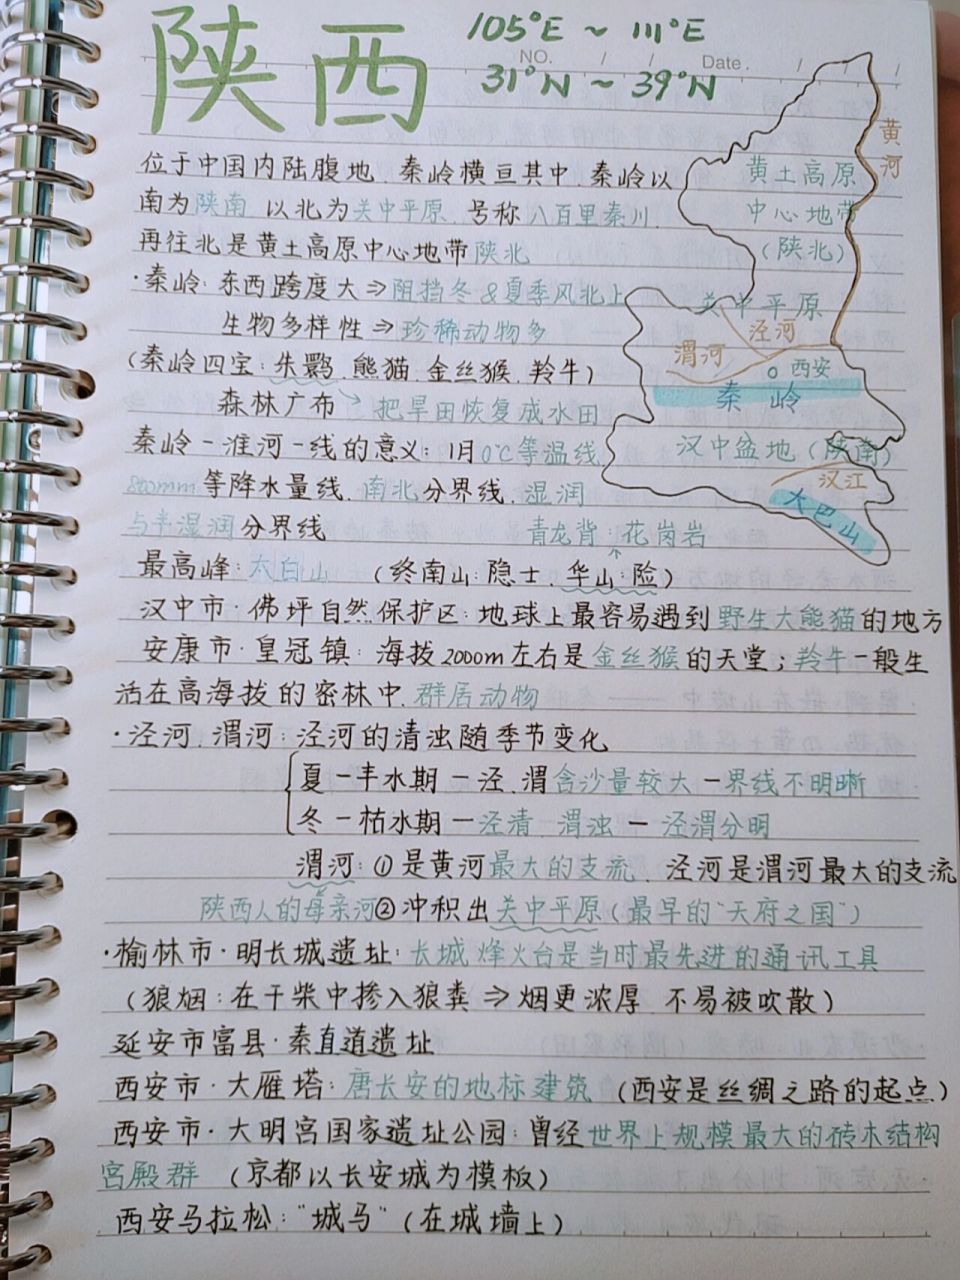 陕西
105°E ~ 111°E
NO. / / Date. / /
31°N ~ 39°N
黄河
位于中国内陆腹地.秦岭横亘其中.秦岭以
黄土高原
南为陕南 以北为关中平原 号称八百里秦川.
中心地带
再往北是黄土高原中心地带陕北
(陕北)
·秦岭:东西跨度大⇒阻挡冬&夏季风北上
关中平原
生物多样性⇒珍稀动物多
泾河
渭河
(秦岭四宝:朱鹮.熊猫.金丝猴.羚牛)
西安
森林广布→把旱田恢复成水田
秦岭
秦岭-淮河-线的意义:1月0℃等温线
汉中盆地(陕南)
800mm等降水量线.南北分界线.湿润
汉江
大巴山
与半湿润分界线
青龙背:花岗岩
最高峰:太白山 (终南山:隐士.华山:险)
汉中市·佛坪自然保护区:地球上最容易遇到野生大熊猫的地方
安康市·皇冠镇:海拔2000m左右是金丝猴的天堂;羚牛一般生
活在高海拔的密林中.群居动物
·泾河.渭河:泾河的清浊随季节变化
夏-丰水期-泾.渭含沙量较大-界线不明晰
冬-枯水期-泾清 渭浊-泾渭分明
渭河:①是黄河最大的支流.泾河是渭河最大的支流
陕西人的母亲河②冲积出关中平原(最早的"天府之国")
·榆林市·明长城遗址:长城烽火台是当时最先进的通讯工具
(狼烟:在干柴中掺入狼粪⇒烟更浓厚 不易被吹散)
延安市富县·秦直道遗址
西安市·大雁塔:唐长安的地标建筑 (西安是丝绸之路的起点)
西安市·大明宫国家遗址公园:曾经世界上规模最大的砖木结构
宫殿群 (京都以长安城为模板)
西安马拉松:"城马"(在城墙上)